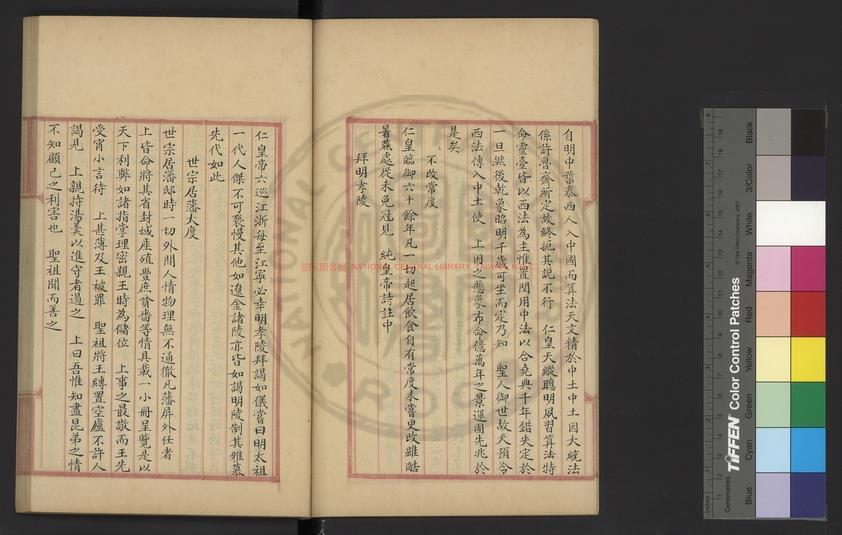 自明中葉泰西人入中國而算法天文精於中土中土因大統法
係許魯齋所定故終拒其說不行　仁皇天縱聰明夙習算法特
命靈臺皆以西法為主惟置閏用中法以合堯典千年錯失定於
一旦然後乾象昭明千歲可坐而定乃知　聖人御世故天預令
西法傳入中土使　上因之懸象布命億萬年之景運固先兆於
是矣
不改常度
仁皇臨御六十餘年凡一切起居飲食自有常度未嘗更改雖酷
暑燕處從未免冠見　純皇帝詩註中
拜明孝陵
仁皇帝六巡江浙每至江寧必幸明孝陵拜謁如儀嘗曰明太祖
一代人傑不可褻慢其他如遼金諸陵亦皆如謁明陵制其雅慕
先代如此
世宗居藩大度
世宗居藩邸時一切外間人情物理無不通徹凡藩屏外任者
上皆命將其省封域產殖豐庶貧嗇等情具載一小冊呈覽是以
天下利弊如諸指掌理密親王時為儲位　上事之最敬而王先
受宵小言待　上甚薄及王被罪　聖祖將王縛置空廬不許人
謁見　上親持湯羹以進守者遏之　上曰吾惟知盡昆弟之情
不知顧已之利害也　聖祖聞而善之
國家圖書館 NATIONAL CENTRAL LIBRARY
TIFFEN Color Control Patches
© The Tiffen Company, 2007
Inches
Centimetres
Blue
Cyan
Green
Yellow
Red
Magenta
White
3/Color
Black